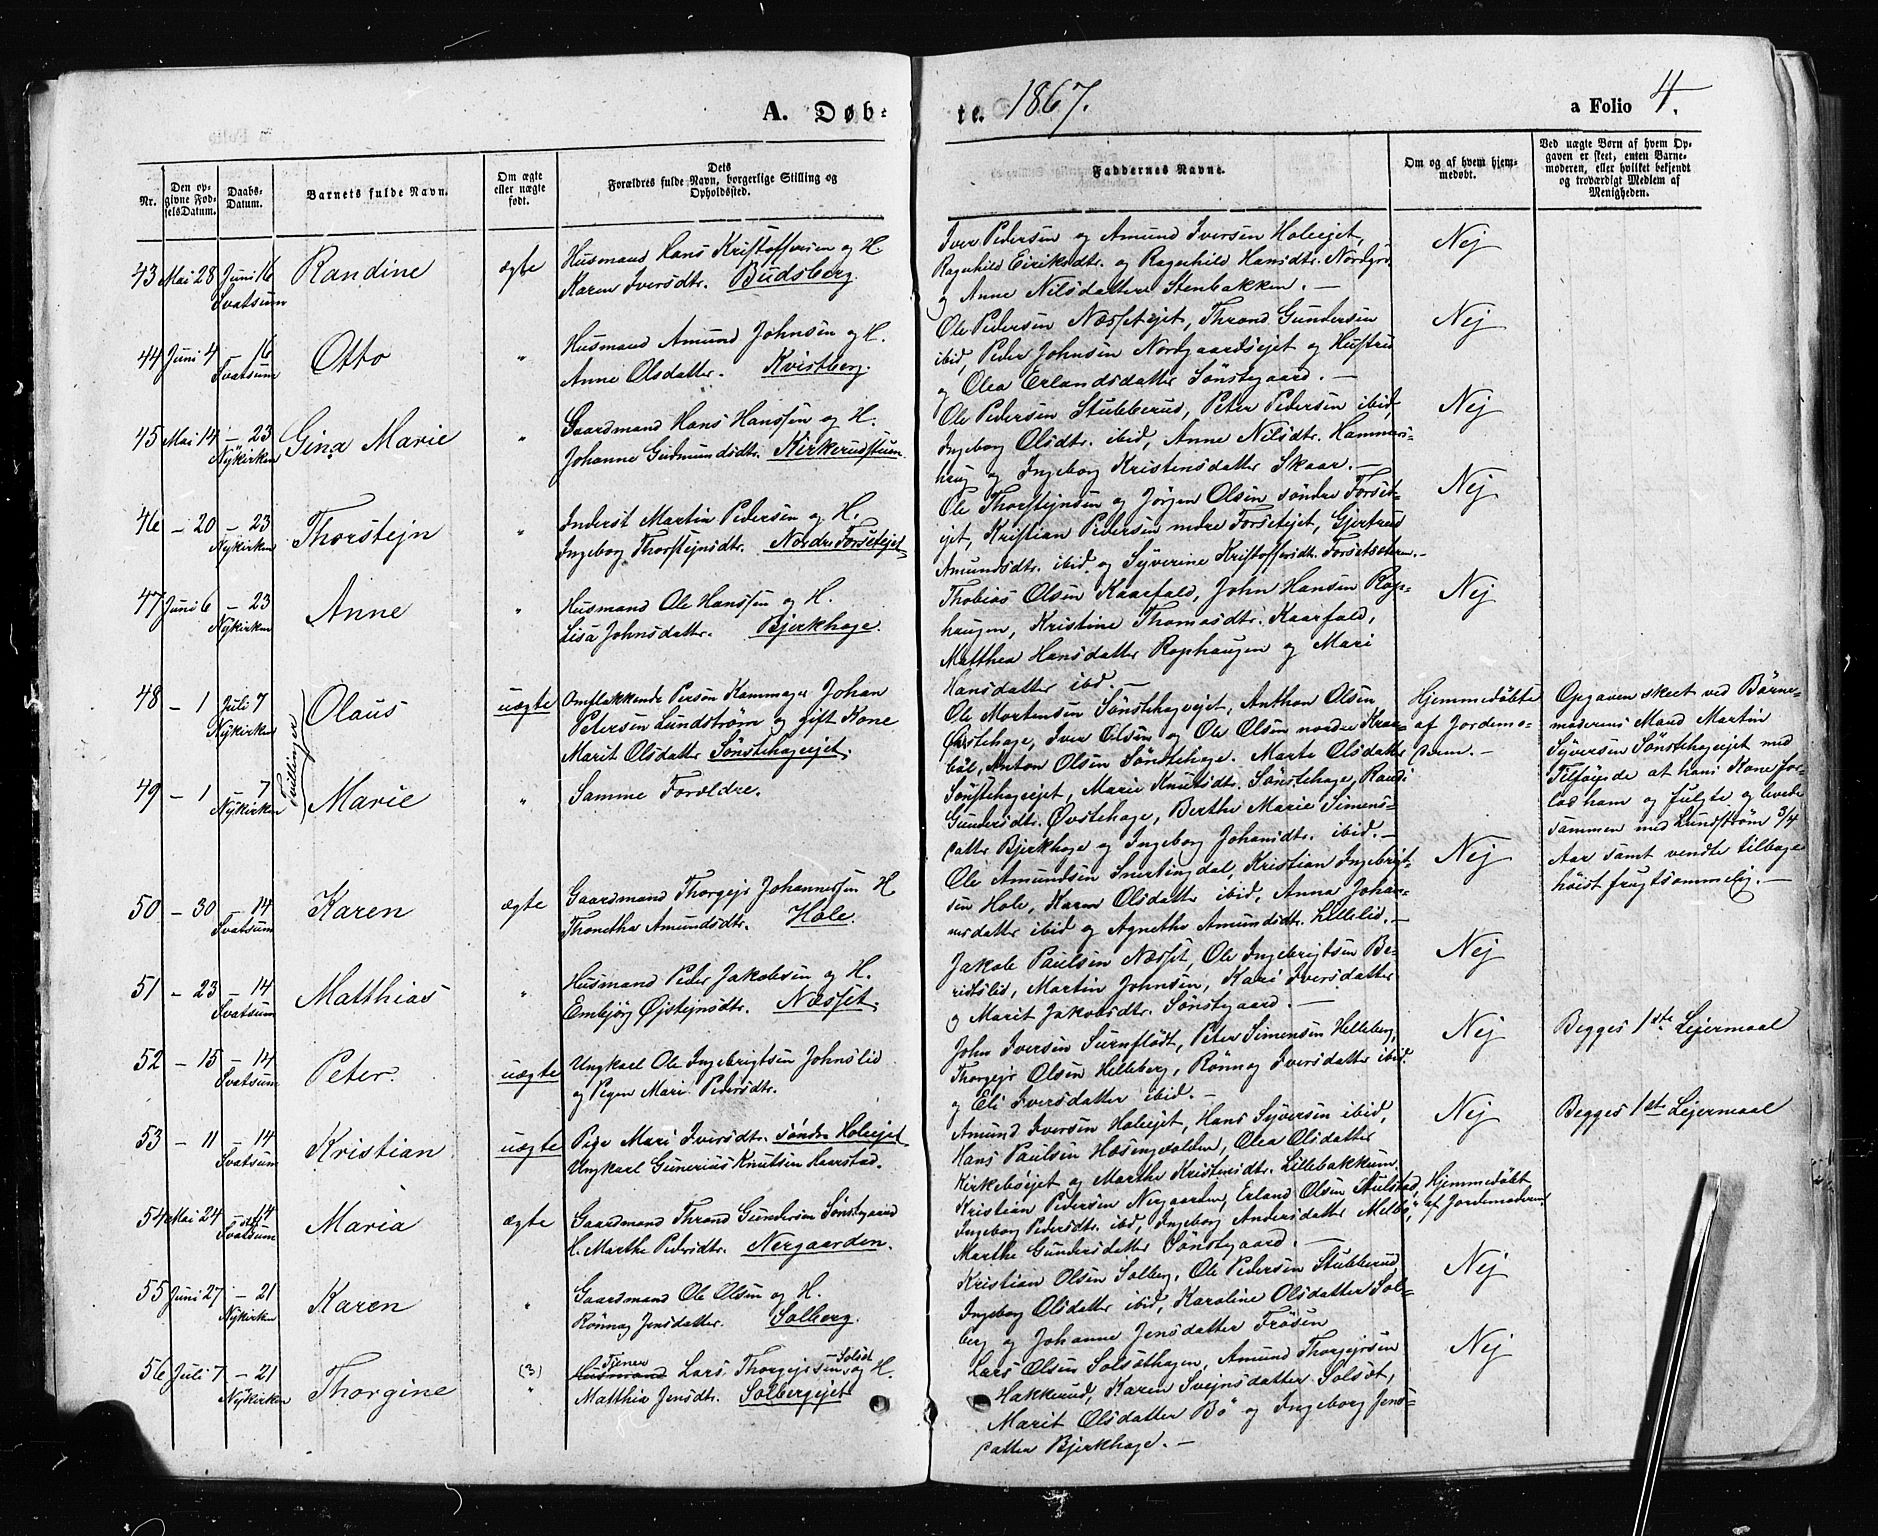 A. Døb-
te. 1867.
a Folio 4.
Nr.
Den opgivne Fødsels Datum.
Daabs-Datum.
Barnets fulde Navn.
Om ægte eller uægte født.
Dets Forældres fulde Navn, borgerlige Stilling og Opholdssted.
Faddernes Navne.
Om og af hvem hjemmedøbt.
Ved uægte Børn af hvem Opgaven er skeet, enten Barnemoderen, eller hvilket bekjendt og troværdigt Medlem af Menigheden.
43 Mai 28 Juni 16 Svatsum Randine ægte
Husmand Hans Kristoffersen og H.
Karen Iversdtr. Budsberg.
Iver Pedersen og Amund Iversen Holeejet,
Ragnhild Eiriksdtr. og Ragnhild Hansdtr. Nordgrd.
og Anne Nilsdatter Stenbakken. –
Nej
44 Juni 4 – 16 Svatsum Otto "
Husmand Amund Johnsen og H.
Anne Olsdatter. Kvistberg.
Ole Pedersen Næssetejet, Thrond Gundersen
ibid, Peder Johnsen Nordgaardsejet og Hustru
og Olea Erlandsdatter Sønstegaard. –
Nej
45 Mai 14 – 23 Nykirken Gina Marie "
Gaardmand Hans Hanssen og H.
Johanne Gudmundsdtr. Kirkerudstuen.
Ole Pedersen Stubberud, Peter Pedersen ibid,
Ingeborg Olsdtr. ibid, Anne Nilsdtr. Hammers-
haug og Ingeborg Kristensdatter Skaar. –
Nej
46 – 20 – 23 Nykirken Thorstejn "
Inderst Martin Pedersen og H.
Ingeborg Thorstejnsdtr. Nordre Forsetejet
Ole Thorstejnsen og Jørgen Olsen søndre Forset-
ejet, Kristian Pedersen nedre Forsetejet, Gjertrud
Amundsdtr. ibid. og Syverine Kristoffersdtr. Forsetsæteren. –
Nej
47 Juni 6 – 23 Nykirken Anne "
Husmand Ole Hanssen og H.
Lisa Johnsdatter. Bjerkhage.
Thobias Olsen Kaarfald, John Hansen Rop-
haugen, Kristine Thomasdtr. Kaarfald,
Matthea Hansdatter Rophaugen og Mari
Hansdatter ibd. –
Nej
48 – 1 Juli 7 Nykirken Olaus uægte
Tvillinger
Omflakkende Person Kammager Johan
Petersen Lundstrøm og gift Kone
Marit Olsdatter Sønstehageejet.
Ole Mortensen Sønstehageejet, Anthon Olsen
Øvstehage, Iver Olsen og Ole Olsen nordre Kraa-
bøl, Anton Olsen Sønstehage. Marte Olsdatter
Hjemmedøbte
af Jordemo-
deren. –
Opgaven skeet ved Barne-
moderens Mand Martin
Syversen Sønstehageejet med
Tilføjende at hans Kone for-
lod ham og fulgte og levede
sammen med Lundstrøm 3/4
Aar samt vendte tilbage
høist frugtsommelig. –
49 – 1 – 7 Nykirken Marie "
Samme Forældre.
Sønstehageejet, Marie Knutsdtr. Sønstehage, Randi
Gundersdtr. Øvstehage, Berthe Marie Simens-
datter Bjerkhage og Ingeborg Johansdtr. ibid. –
50 – 30 – 14 Svatsum Karen ægte
Gaardmand Thorgejr Johannessen H
Thonetha Amundsdtr. Hole.
Ole Amundsen Snertingdal, Kristian Ingebrigt-
sen Hole, Karen Olsdatter ibid, Anna Johan-
nesdatter ibid og Agnethe Amundsdtr. Lillelid. –
Nej
51 – 23 – 14 Svatsum Matthias "
Husmand Peder Jakobsen og H.
Embjørg Øjstejnsdtr. Næsset.
Jakob Paulsen Næsset, Ole Ingebrigtsen Be-
ridslid, Martin Johnsen, Kari Iversdatter
og Marit Jakobsdtr. Sønstgaard. –
Nej
52 – 15 – 14 Svatsum Peter. uægte
Ungkarl Ole Ingebrigtsen Johnslid
og Pigen Mari Pedersdtr.
John Iversen Surnflødt, Peter Simensen Helleberg,
Thorgejr Olsen Helleberg, Rønnog Iversdatter ibid.
og Eli Iversdatter ibid. –
Nej
Begges 1ste Lejermaal
53 – 11 – 14 Svatsum Kristian uægte
Pige Mari Iversdtr. søndre Holeejet
Ungkarl Gunerius Knutsen Haarstad.
Amund Iversen Holeejet, Hans Syversen ibid,
Hans Paulsen Hæsingdalen, Olea Olsdatter
Kirkebøejet og Marthe Kristensdtr. Lillebakkum
Nej
Begges 1ste Lejermaal
54 Mai 24 – 14 Svatsum Maria ægte
Gaardmand Thrond Gundersen Sønstgaard
H. Marthe Pedersdtr. Nergaarden.
Kristian Pedersen Nergaarden, Erland Olsen Stulstad,
Ingeborg Pedersdtr. ibid, Ingeborg Andersdatter Melbø,
Marthe Gundersdatter Sønstgaard. –
Hjemmedøbt
af Jordemoderen
55 Juni 27 – 21 Nykirken Karen "
Gaardmand Ole Olsen og H.
Rønnog Jensdatter. Solberg.
Kristian Olsen Solberg, Ole Pedersen Stubberud
Ingeborg Olsdatter ibid, Karoline Olsdatter Sol-
berg og Johanne Jensdatter Frøsen
Nej
56 Juli 7 – 21 Nykirken Thorgine (3) "
Tjener
Husmand Lars Thorgejrssen og H.
Matthia Jensdtr. Solbergejet
Lars Olsen Solsøthagen, Amund Thorgejrsen
Hakkerud, Karen Svejnsdatter Solsøt,
Marit Olsdatter Bø og Ingeborg Jens-
datter Bjerkhage. –
Nej